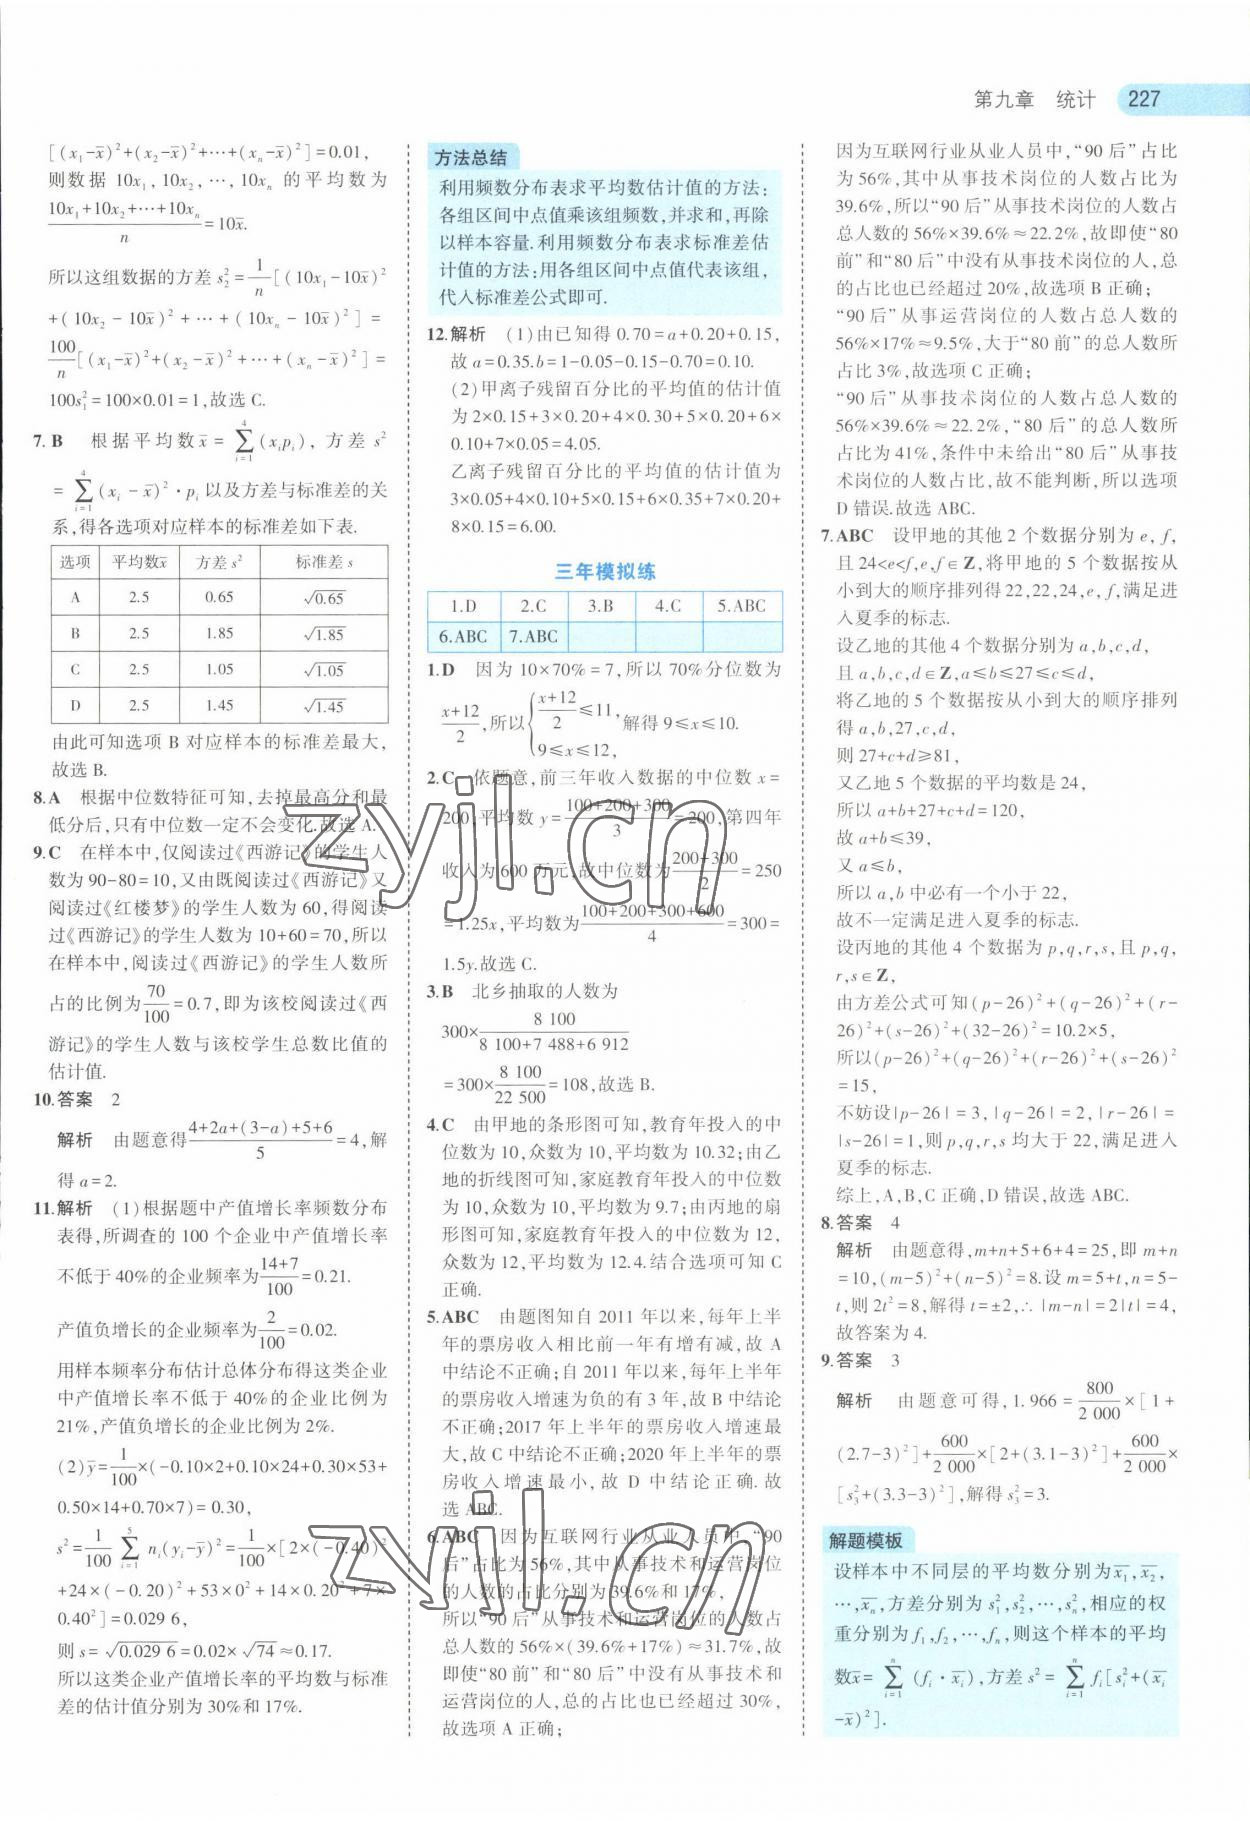 第九章　统计　227
[(x₁-x̄)²+(x₂-x̄)²+…+(xₙ-x̄)²]=0.01,
则数据 10x₁,10x₂,…,10xₙ 的平均数为
(10x₁+10x₂+…+10xₙ)/n=10x̄.
所以这组数据的方差 s₂²=1/n[(10x₁-10x̄)²
+(10x₂-10x̄)²+…+(10xₙ-10x̄)²]=
100/n[(x₁-x̄)²+(x₂-x̄)²+…+(xₙ-x̄)²]=
100s₁²=100×0.01=1,故选 C.
7.B　根据平均数x̄=∑_{i=1}^{4}(xᵢpᵢ),方差 s²
=∑_{i=1}^{4}(xᵢ-x̄)²·pᵢ以及方差与标准差的关
系,得各选项对应样本的标准差如下表.
选项　平均数x̄　方差 s²　标准差 s
A　2.5　0.65　√0.65
B　2.5　1.85　√1.85
C　2.5　1.05　√1.05
D　2.5　1.45　√1.45
由此可知选项 B 对应样本的标准差最大,
故选 B.
8.A　根据中位数特征可知,去掉最高分和最
低分后,只有中位数一定不会变化.故选 A.
9.C　在样本中,仅阅读过《西游记》的学生人
数为 90-80=10,又由既阅读过《西游记》又
阅读过《红楼梦》的学生人数为 60,得阅读
过《西游记》的学生人数为 10+60=70,所以
在样本中,阅读过《西游记》的学生人数所
占的比例为70/100=0.7,即为该校阅读过《西
游记》的学生人数与该校学生总数比值的
估计值.
10.答案　2
解析　由题意得(4+2a+(3-a)+5+6)/5=4,解
得 a=2.
11.解析　(1)根据题中产值增长率频数分布
表得,所调查的 100 个企业中产值增长率
不低于 40%的企业频率为(14+7)/100=0.21.
产值负增长的企业频率为2/100=0.02.
用样本频率分布估计总体分布得这类企业
中产值增长率不低于 40%的企业比例为
21%,产值负增长的企业比例为 2%.
(2)ȳ=1/100×(-0.10×2+0.10×24+0.30×53+
0.50×14+0.70×7)=0.30,
s²=1/100∑_{i=1}^{5}nᵢ(yᵢ-ȳ)²=1/100×[2×(-0.40)²
+24×(-0.20)²+53×0²+14×0.20²+7×
0.40²]=0.029 6,
则 s=√0.029 6=0.02×√74≈0.17.
所以这类企业产值增长率的平均数与标准
差的估计值分别为 30%和 17%.
方法总结
利用频数分布表求平均数估计值的方法:
各组区间中点值乘该组频数,并求和,再除
以样本容量.利用频数分布表求标准差估
计值的方法:用各组区间中点值代表该组,
代入标准差公式即可.
12.解析　(1)由已知得 0.70=a+0.20+0.15,
故 a=0.35.b=1-0.05-0.15-0.70=0.10.
(2)甲离子残留百分比的平均值的估计值
为 2×0.15+3×0.20+4×0.30+5×0.20+6×
0.10+7×0.05=4.05.
乙离子残留百分比的平均值的估计值为
3×0.05+4×0.10+5×0.15+6×0.35+7×0.20+
8×0.15=6.00.
三年模拟练
1.D　2.C　3.B　4.C　5.ABC
6.ABC　7.ABC
1.D　因为 10×70%=7,所以 70%分位数为
(x+12)/2,所以{(x+12)/2≤11, 9≤x≤12,解得 9≤x≤10.
2.C　依题意,前三年收入数据的中位数 x=
200,平均数 y=(100+200+300)/3=200,第四年
收入为 600 万元,故中位数为(200+300)/2=250
=1.25x,平均数为(100+200+300+600)/4=300=
1.5y.故选 C.
3.B　北乡抽取的人数为
300×8 100/(8 100+7 488+6 912)
=300×8 100/22 500=108,故选 B.
4.C　由甲地的条形图可知,教育年投入的中
位数为 10,众数为 10,平均数为 10.32;由乙
地的折线图可知,家庭教育年投入的中位数
为 10,众数为 10,平均数为 9.7;由丙地的扇
形图可知,家庭教育年投入的中位数为 12,
众数为 12,平均数为 12.4.结合选项可知 C
正确.
5.ABC　由题图知自 2011 年以来,每年上半
年的票房收入相比前一年有增有减,故 A
中结论不正确;自 2011 年以来,每年上半年
的票房收入增速为负的有 3 年,故 B 中结论
不正确;2017 年上半年的票房收入增速最
大,故 C 中结论不正确;2020 年上半年的票
房收入增速最小,故 D 中结论正确.故
选 ABC.
6.ABC　因为互联网行业从业人员中,“90
后”占比为 56%,其中从事技术和运营岗位
的人数的占比分别为 39.6%和 17%,
所以“90 后”从事技术和运营岗位的人数占
总人数的 56%×(39.6%+17%)≈31.7%,故
即使“80 前”和“80 后”中没有从事技术和
运营岗位的人,总的占比也已经超过 30%,
故选项 A 正确;
因为互联网行业从业人员中,“90 后”占比
为 56%,其中从事技术岗位的人数占比为
39.6%,所以“90 后”从事技术岗位的人数占
总人数的 56%×39.6%≈22.2%,故即使“80
前”和“80 后”中没有从事技术岗位的人,总
的占比也已经超过 20%,故选项 B 正确;
“90 后”从事运营岗位的人数占总人数的
56%×17%≈9.5%,大于“80 前”的总人数所
占比 3%,故选项 C 正确;
“90 后”从事技术岗位的人数占总人数的
56%×39.6%≈22.2%,“80 后”的总人数所
占比为 41%,条件中未给出“80 后”从事技
术岗位的人数占比,故不能判断,所以选项
D 错误.故选 ABC.
7.ABC　设甲地的其他 2 个数据分别为 e,f,
且 24<e<f,e,f∈Z,将甲地的 5 个数据按从
小到大的顺序排列得 22,22,24,e,f,满足进
入夏季的标志.
设乙地的其他 4 个数据分别为 a,b,c,d,
且 a,b,c,d∈Z,a≤b≤27≤c≤d,
将乙地的 5 个数据按从小到大的顺序排列
得 a,b,27,c,d,
则 27+c+d≥81,
又乙地 5 个数据的平均数是 24,
所以 a+b+27+c+d=120,
故 a+b≤39,
又 a≤b,
所以 a,b 中必有一个小于 22,
故不一定满足进入夏季的标志.
设丙地的其他 4 个数据为 p,q,r,s,且 p,q,
r,s∈Z,
由方差公式可知(p-26)²+(q-26)²+(r-
26)²+(s-26)²+(32-26)²=10.2×5,
所以(p-26)²+(q-26)²+(r-26)²+(s-26)²
=15,
不妨设|p-26|=3,|q-26|=2,|r-26|=
|s-26|=1,则 p,q,r,s 均大于 22,满足进入
夏季的标志.
综上,A,B,C 正确,D 错误,故选 ABC.
8.答案　4
解析　由题意得,m+n+5+6+4=25,即 m+n
=10,(m-5)²+(n-5)²=8.设 m=5+t,n=5-
t,则 2t²=8,解得 t=±2,∴|m-n|=2|t|=4,
故答案为 4.
9.答案　3
解析　由题意可得,1.966=800/2 000×[1+
(2.7-3)²]+600/2 000×[2+(3.1-3)²]+600/2 000×
[s₃²+(3.3-3)²],解得 s₃²=3.
解题模板
设样本中不同层的平均数分别为x̄₁,x̄₂,
…,x̄ₙ,方差分别为 s₁²,s₂²,…,sₙ²,相应的权
重分别为 f₁,f₂,…,fₙ,则这个样本的平均
数x̄=∑_{i=1}^{n}(fᵢ·x̄ᵢ),方差 s²=∑_{i=1}^{n}fᵢ[sᵢ²+(x̄ᵢ
-x̄)²].
zyjl.cn
zyjl.cn